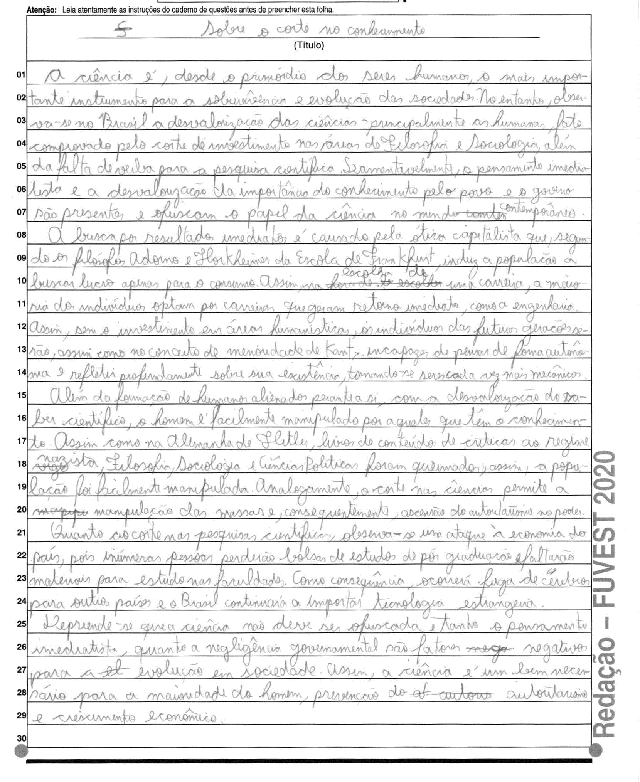 Atenção: Leia atentamente as instruções do caderno de questões antes de preencher esta folha.
Sobre o corte no conhecimento
(Título)
01 A ciência é, desde o primórdio dos seres humanos, o mais impor-
02 tante instrumento para a sobrevivência e evolução das sociedades. No entanto, obser-
03 va-se no Brasil a desvalorização das ciências - principalmente as humanas, fato
04 comprovado pelo corte de investimento nas áreas de Filosofia e Sociologia, além
05 da falta de verba para a pesquisa científica. Lamentavelmente, o pensamento imedia-
06 tista e a desvalorização da importância do conhecimento pelo povo e o governo
07 são presentes e ofuscam o papel da ciência no mundo contemporâneo.
08 A busca por resultados imediatos é causado pela ótica capitalista que, segun-
09 do os filósofos Adorno e Horkheimer da Escola de Frankfurt, induz a população a
10 buscar lucro apenas para o consumo. Assim na escolha de uma carreira, a maio-
11 ria dos indivíduos optam por carreiras que geram retorno imediato, como a engenharia.
12 Assim, sem o investimento em áreas humanísticas, os indivíduos das futuras gerações se-
13 rão, assim como no conceito de menoridade de Kant, incapazes de pensar de forma autôno-
14 ma e refletir profundamente sobre sua existência, tornando-se seres cada vez mais mecânicos.
15 Além da formação de humanos alienados perante a si, com a desvalorização do sa-
16 ber científico, o homem é facilmente manipulado por aqueles que têm o conhecimen-
17 to. Assim como na Alemanha de Hitler, livros de conteúdo de críticas ao regime
18 nazista, Filosofia, Sociologia e Ciências Políticas foram queimados, assim, a popu-
19 lação foi facilmente manipulada. Analogamente, o corte nas ciências permite a
20 manipulação das massas e, consequentemente, ascensão do autoritarismo no poder.
21 Quanto ao corte nas pesquisas científicas, observa-se um ataque à economia do
22 país, pois inúmeras pessoas perderão bolsas de estudos de pós graduação e faltarão
23 materiais para estudo nas faculdades. Como consequência, ocorrerá fuga de cérebros
24 para outros países e o Brasil continuará a importar tecnologia estrangeira.
25 Depreende-se que a ciência não deve ser ofuscada e tanto o pensamento
26 imediatista, quanto a negligência governamental são fatores negativos
27 para a evolução em sociedade. Assim, a ciência é um bem neces-
28 sário para a maioridade do homem, prevenção do autoritarismo
29 e crescimento econômico.
30
Redação – FUVEST 2020